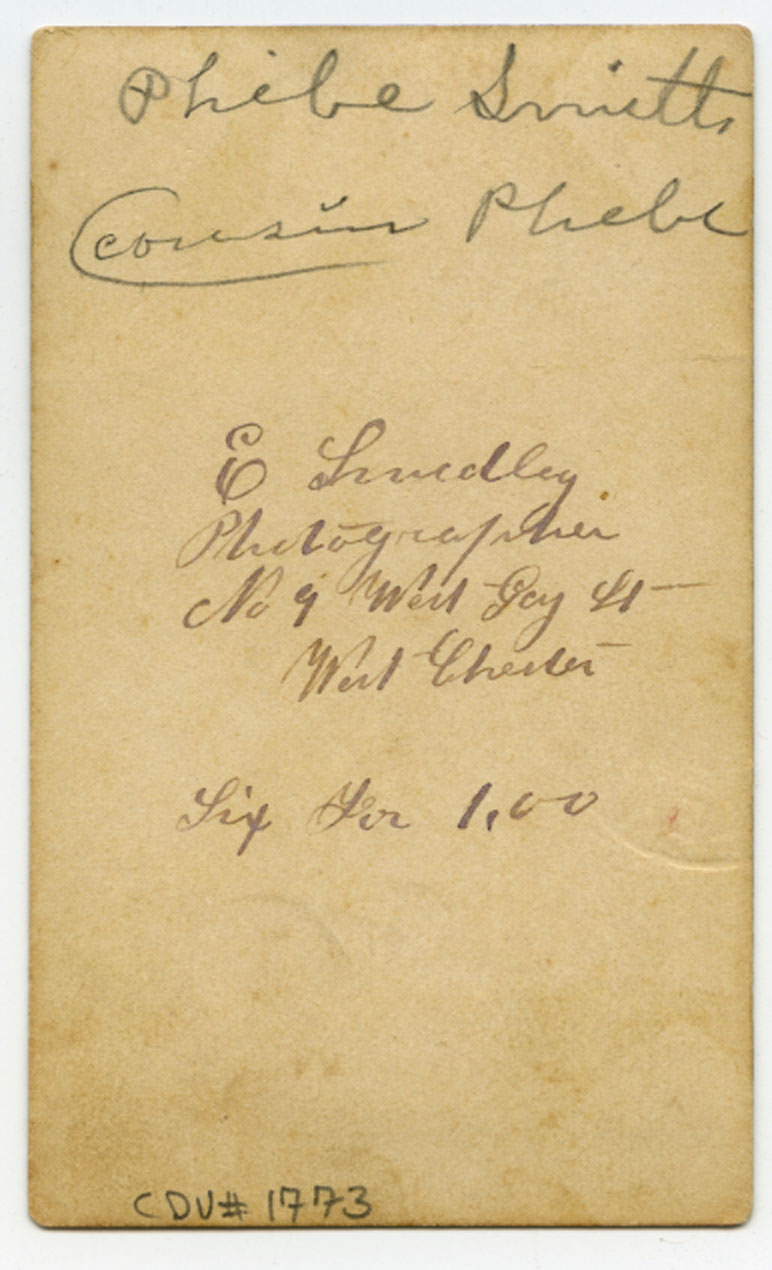 Phebe Smith
cousin Phebe
E Smedley
Photographer
No 9 West Gay St
West Chester
Six For 1,00
CDV# 1773